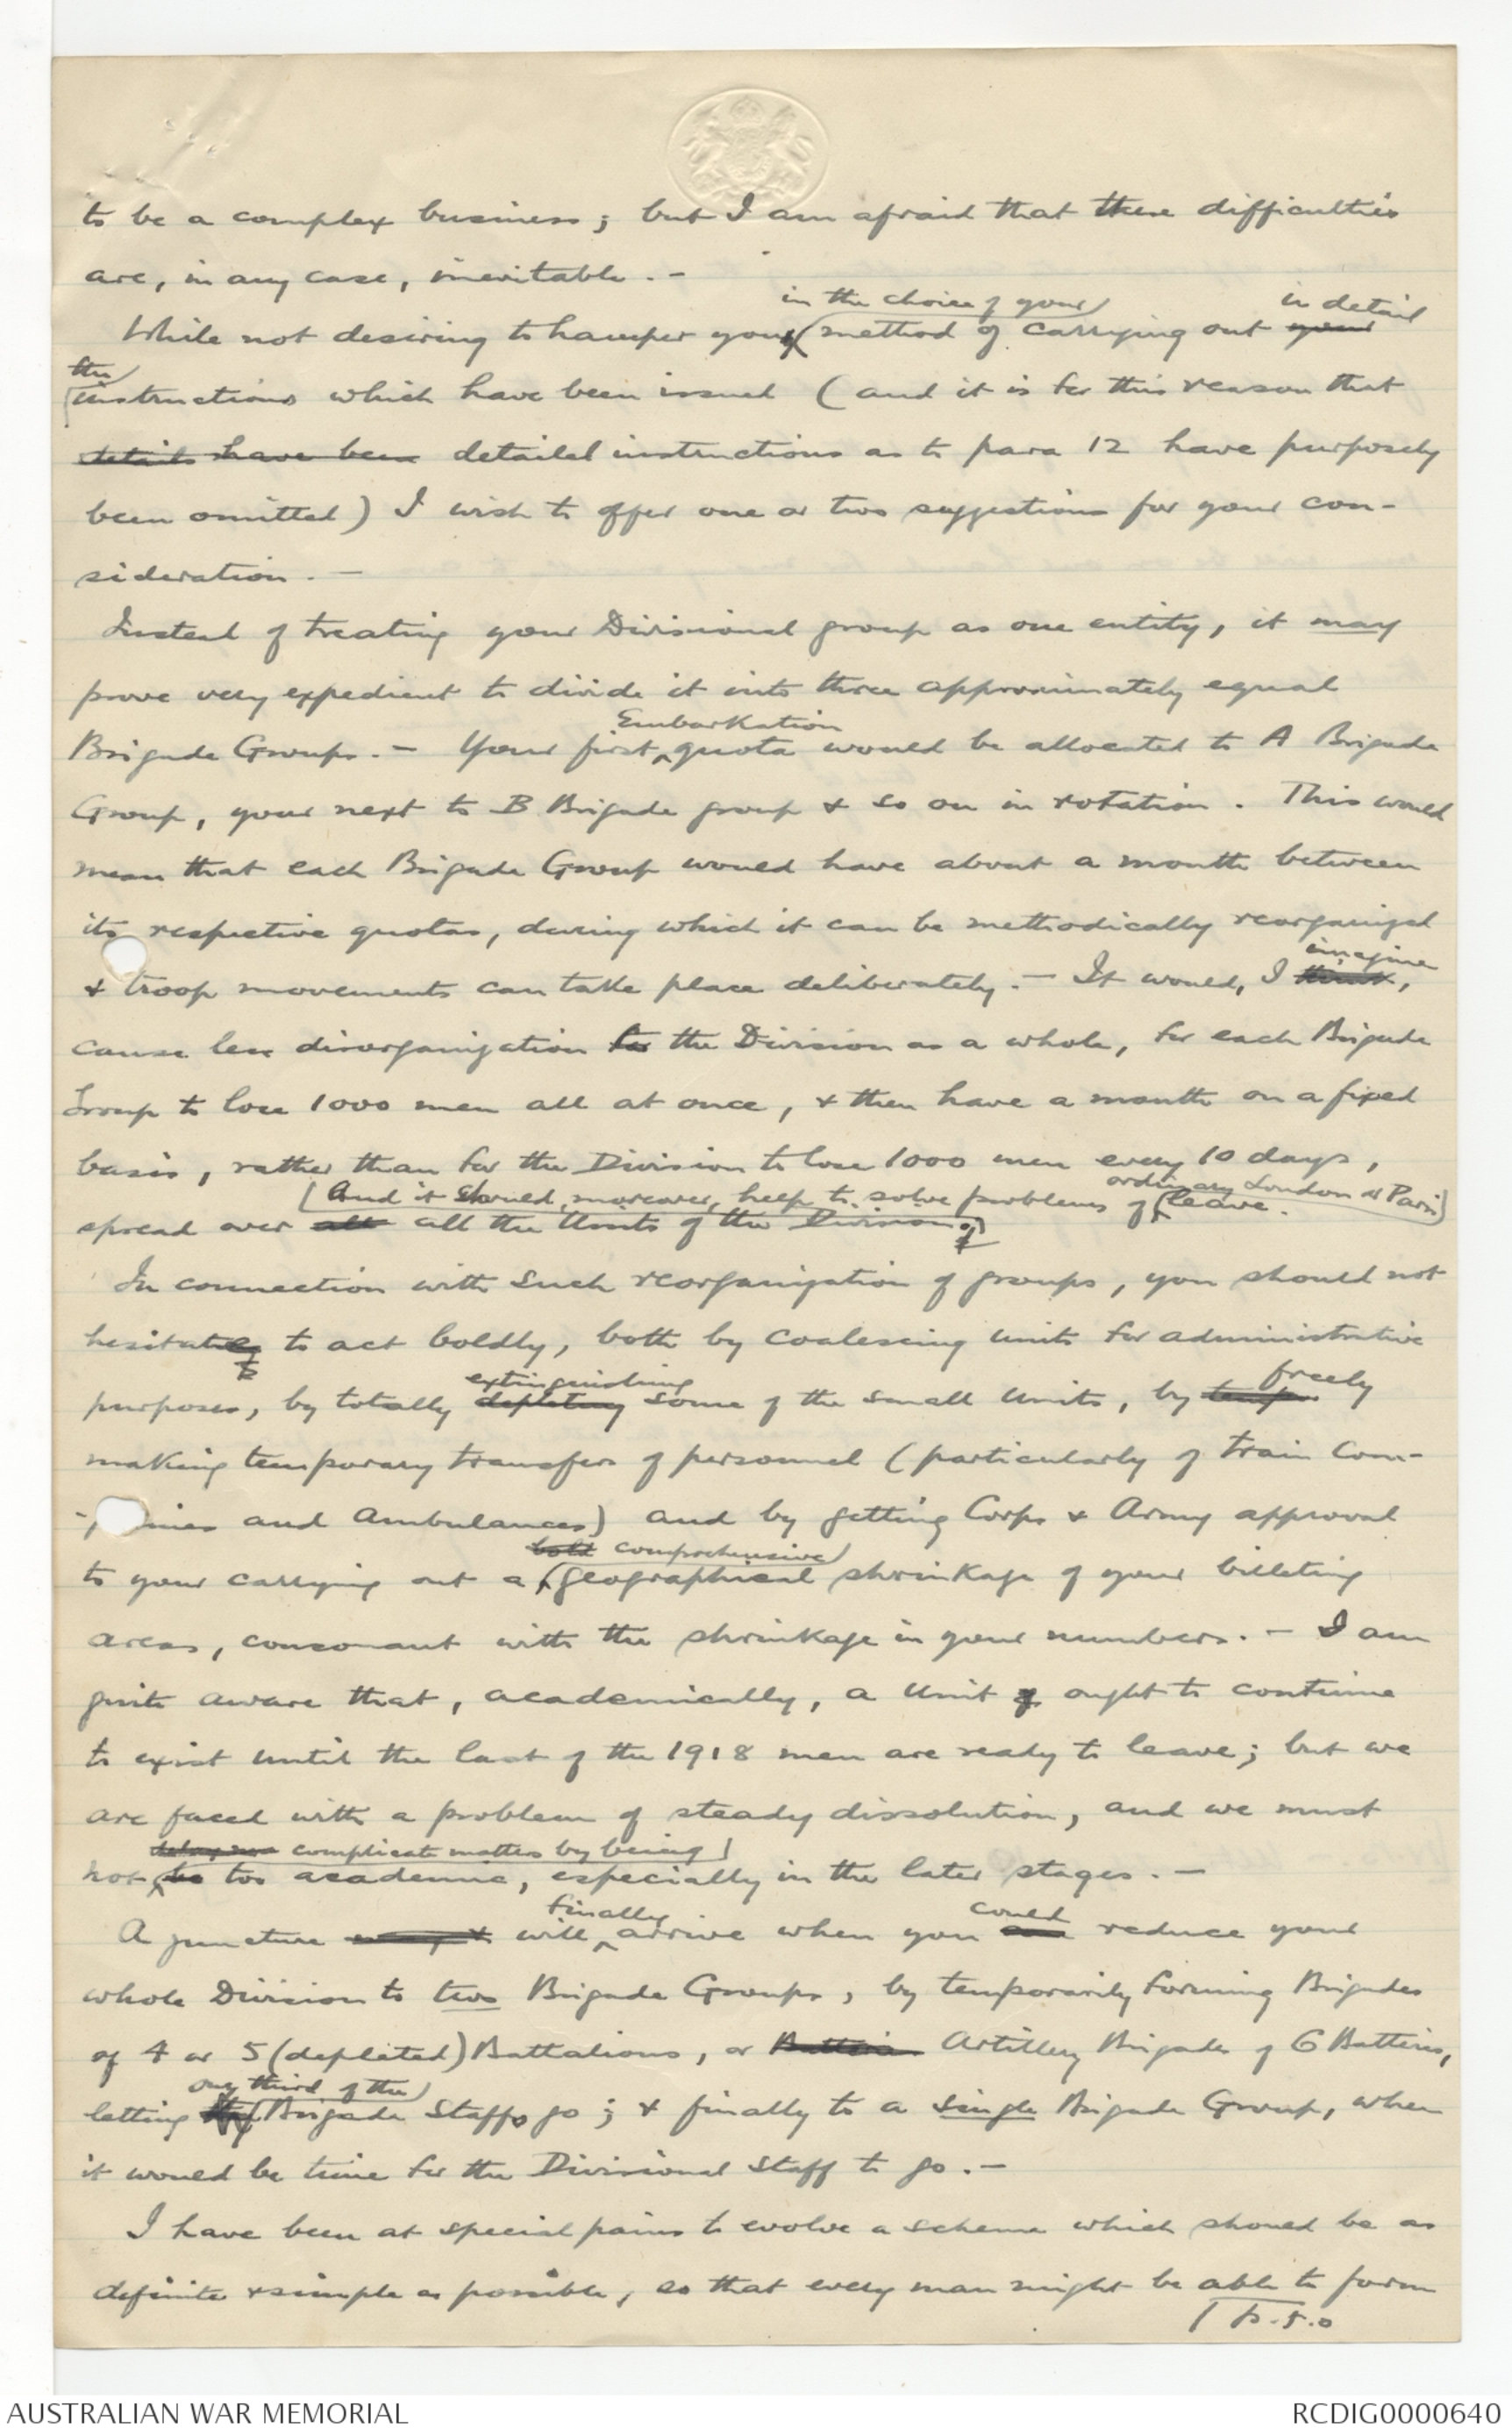 to be a complex business; but I am afraid that these difficulties
are, in any case, inevitable. -
in the choice of your in detail
While not desiring to hamper you method of carrying out your
the
instructions which have been issued (and it is for this reason that
details have been detailed instructions as to para 12 have purposely
been omitted) I wish to offer one or two suggestions for your con-
sideration. -
Instead of treating your Divisional group as one entity, it may
prove very expedient to divide it into three approximately equal
Embarkation
Brigade Groups. - Your first quota would be allocated to A Brigade
Group, your next to B Brigade group & so on in rotation. This would
mean that each Brigade Group would have about a month between
its respective quotas, during which it can be methodically reorganized
imagine
& troop movements can take place deliberately. - It would, I think,
cause less disorganization to the Division as a whole, for each Brigade
Group to lose 1000 men all at once, & then have a month on a fixed
basis, rather than for the Division to lose 1000 men every 10 days,
(And it should, moreover, help to solve problems of ordinary London or Paris leave.)
spread over all all the Units of the Division
In connection with such reorganization of groups, you should not
hesitate to act boldly, both by coalescing units for administrative
extinguishing freely
purposes, by totally depleting some of the small units, by
making temporary transfers of personnel (particularly of train Com-
-nies and Ambulances) and by getting Corps & Army approval
bold comprehensive
to your carrying out a geographical shrinkage of your billeting
areas, consonant with the shrinkage in your numbers. - I am
quite aware that, academically, a Unit ought to continue
to exist until the last of the 1918 men are ready to leave; but we
are faced with a problem of steady dissolution, and we must
complicate matters by being
not be too academic, especially in the later stages. -
finally could
A juncture will arrive when you can reduce your
whole Division to two Brigade Groups, by temporarily forming Brigades
of 4 or 5 (depleted) Battalions, or Artillery Brigades of 6 Batteries,
one third of the
letting Brigade Staffs go; & finally to a single Brigade Group, when
it would be time for the Divisional Staff to go. -
I have been at special pains to evolve a scheme which should be as
definite & simple as possible, so that every man might be able to form
p.5.
AUSTRALIAN WAR MEMORIAL
RCDIG0000640